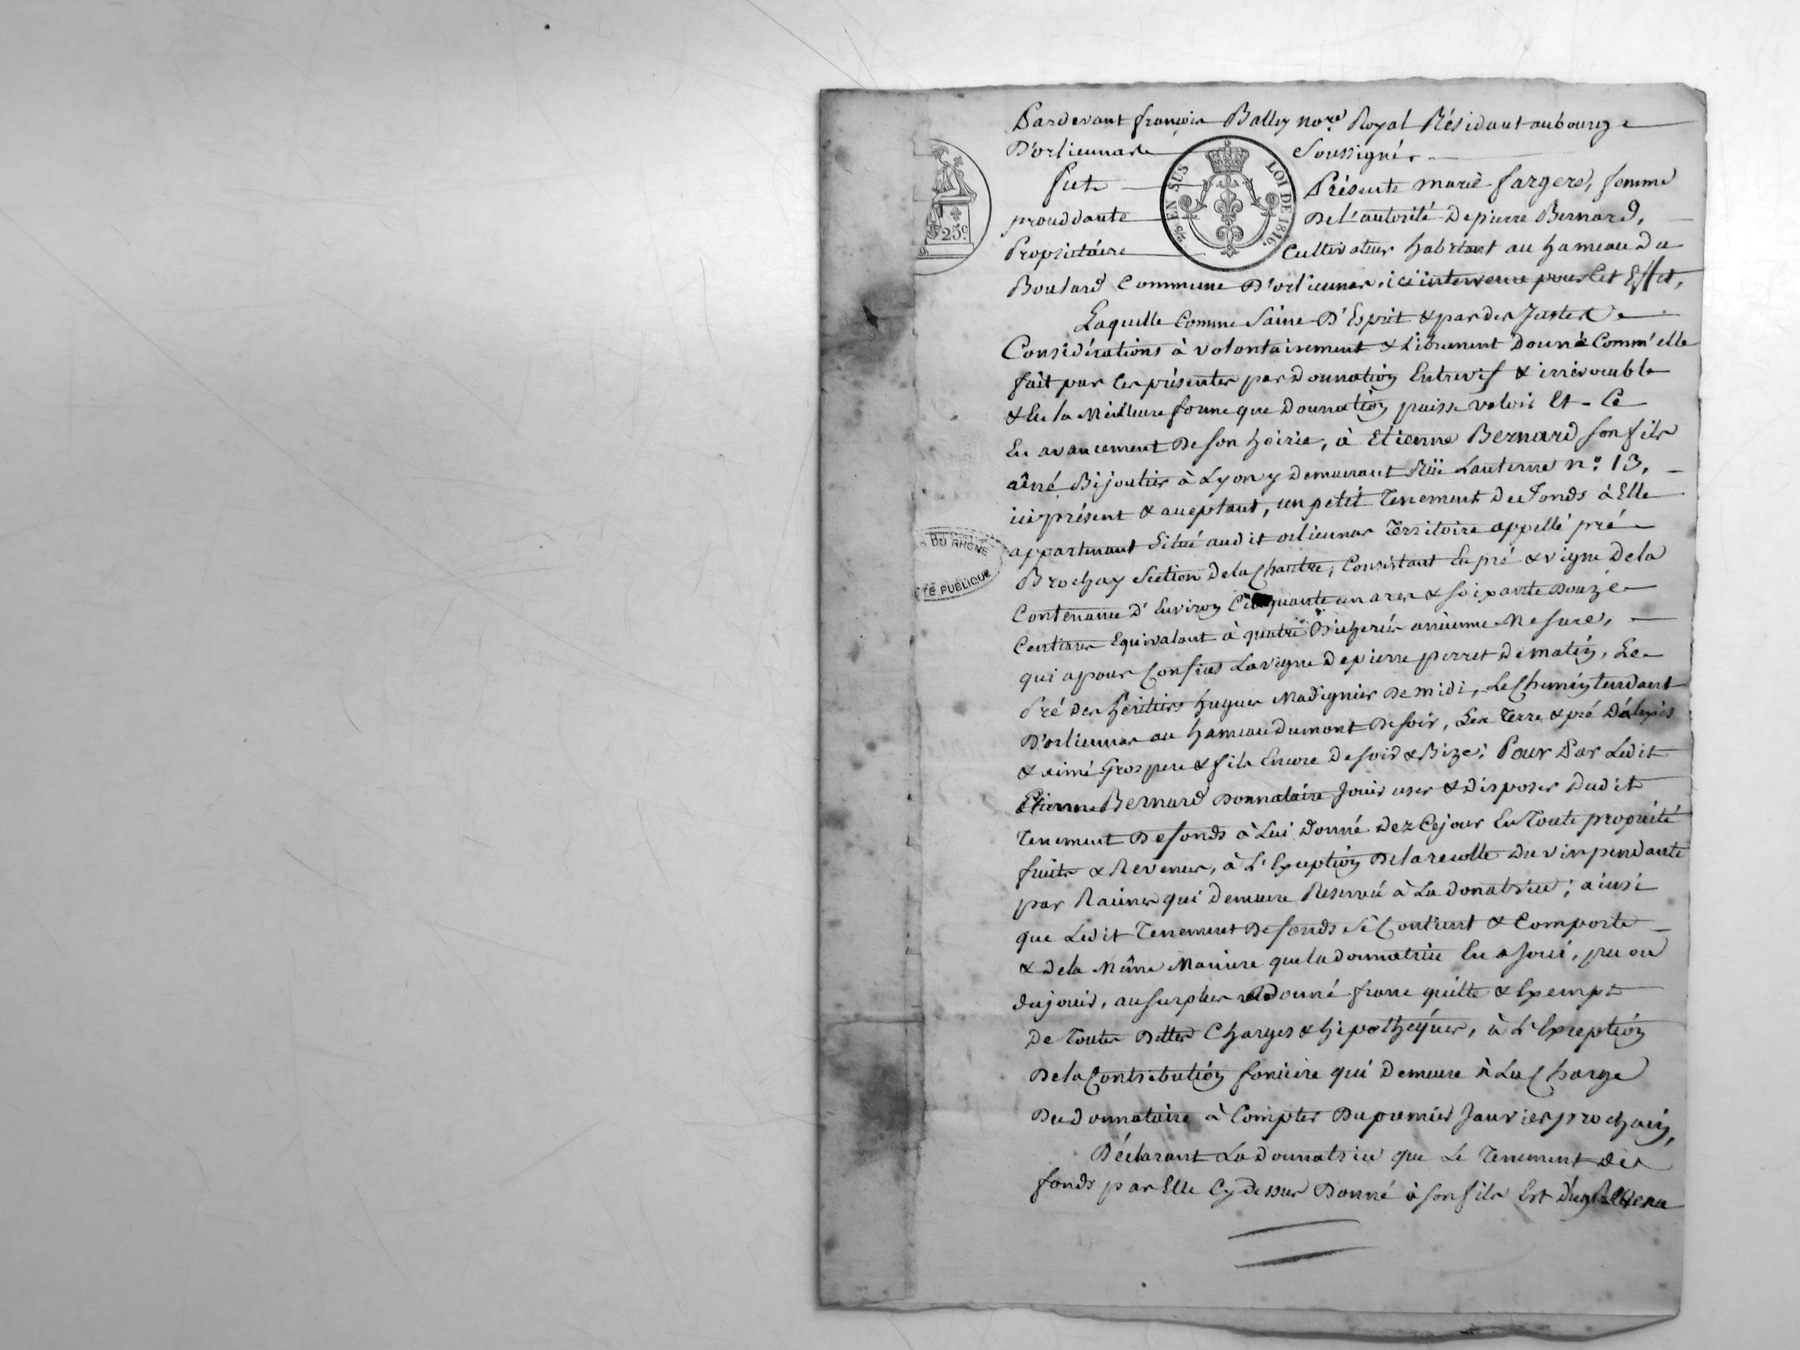 Pardevant françois Balley no.re Royal Résidant au bourg
D'orlienas Soussigné.
fut Présente marie fargere, femme
procédante De l'autorité De pierre Bernard,
Propriétaire Cultivateur habitant au hameau du
Boulard Commune D'orlienas, ici intervenu pour Cet Effet,
Laquelle Comme Saine D'Esprit & par des Justes
Considérations à volontairement & Librement Donné Comm'elle
fait par Ces présentes par Donnation Entrevif & irrévocable
& En la Meilleure forme que Donnation puisse valoir Et Ce
En avancement De Son hoirie, à Etienne Bernard Son fils
aîné Bijoutier à Lyon y demeurant Rüe Lanterne n.º 13,
ici présent & acceptant, un petit Tenement De Fonds à Elle
appartenant Situé audit orlienas Territoire appellé pré
Brochay Section De la Chartre, Consistant En pré & vigne De la
Contenance D'Environ Cinquante un ares & Soixante Douze
Centiares Equivalant à quatre Bicherées ancienne Mesure,
qui a pour Confins La vigne De pierre perret De matin, Le
Pré Des héritiers hugues Madignier De Midi, Le Chemin tendant
D'orlienas au hameau du mont De Soir, Les Terre & pré D'alexis
& aimé Grospere & fils Encore De Soir & Bize; Pour Par Ledit
Etienne Bernard Donnataire Jouir user & Disposer Dudit
Tenement De fonds à Lui Donné Dez Ce jour En Toute propriété
fruits & Revenus, à L'Exception De la recolte Du vin pendante
par Racines qui Demeure Reservée à La donatrice; ainsi
que Ledit Tenement De fonds Se Contient & Comporte
& De la Même Maniere que la donnatrice En a Joui, pu ou
du jouir, au Surplus Donné franc quitte & Exempt
De Toutes Dettes Charges & hipothéques, à L'Exception
De la Contribution fonciere qui Demeure à La Charge
Du donnataire à Compter Du premier Janvier prochain,
Déclarant La Donnatrice que Le Tenement De
fonds par Elle Cy dessus Donné à Son fils Est D'un Revenu
25 EN SUS LOI DE 1816.
25c
DU RHONE
TÉ PUBLIQUE